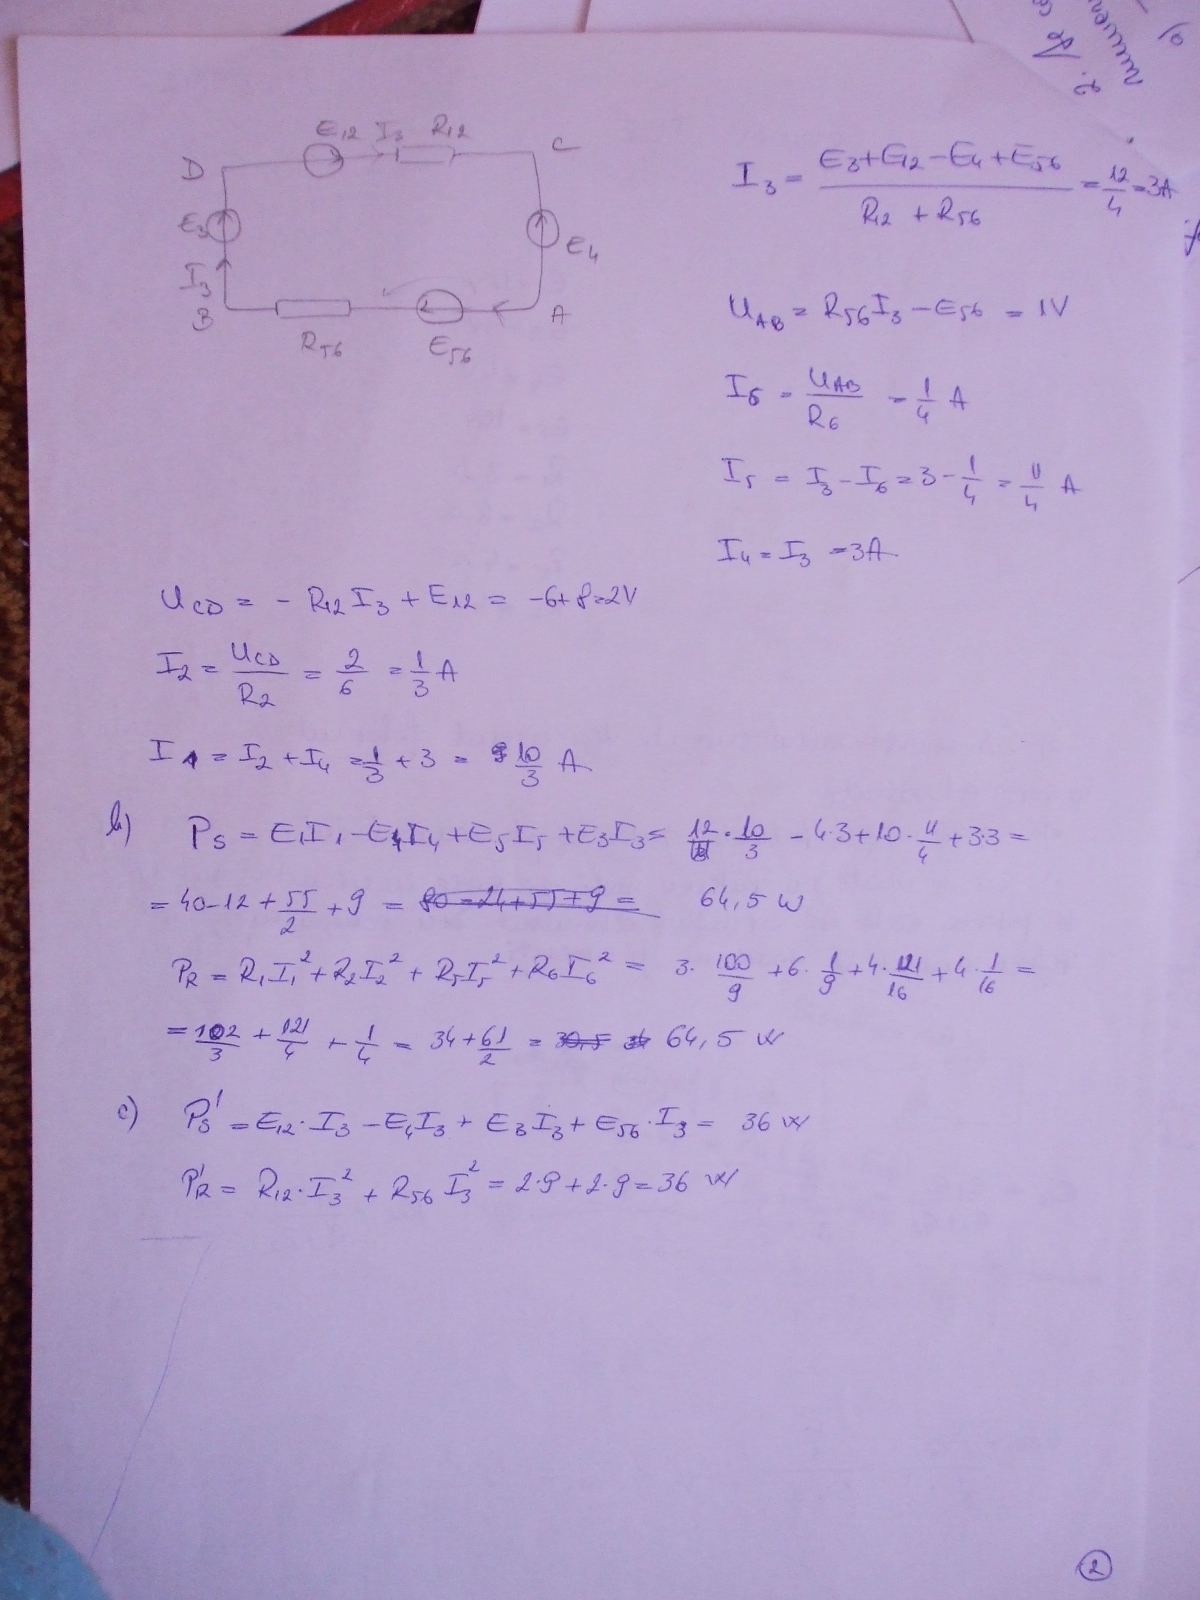 E12 I3 R12
D
C
E3
E4
I3
B
A
R56
E56
I3 = (E3+E12-E4+E56)/(R12+R56) = 12/4 = 3A
UAB = R56I3 - E56 = 1V
I6 = UAB/R6 = 1/4 A
I5 = I3 - I6 = 3 - 1/4 = 11/4 A
I4 = I3 = 3A
UCD = - R12I3 + E12 = -6+8=2V
I2 = UCD/R2 = 2/6 = 1/3 A
I1 = I2 + I4 = 1/3 + 3 = 10/3 A
b) PS = E1I1 - E4I4 + E5I5 + E3I3 = 12·10/3 - 4·3 + 10·11/4 + 3·3 =
= 40-12 + 55/2 + 9 = 80-24+55+9 = 64,5 W
PR = R1I1² + R2I2² + R5I5² + R6I6² = 3·100/9 + 6·1/9 + 4·121/16 + 4·1/16 =
= 102/3 + 121/4 + 1/4 = 34 + 61/2 = 30,5 64,5 W
c) PS' = E12·I3 - E4I3 + E3I3 + E56·I3 = 36 W
PR' = R12·I3² + R56I3² = 2·9+2·9=36 W
2